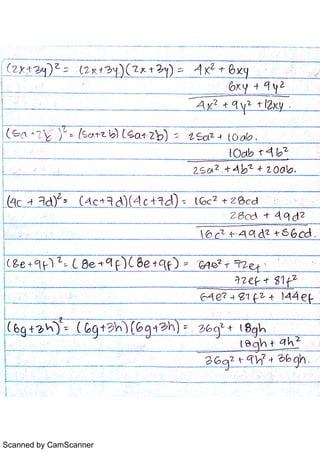 (2x+3y)² = (2x+3y)(2x+3y) = 4x² + 6xy
6xy + 9y²
4x² + 9y² + 12xy.
(5a + 2b)² = (5a+2b)(5a+2b) = 25a² + 10ab.
10ab + 4b²
25a² + 4b² + 20ab.
(4c + 7d)² = (4c+7d)(4c+7d) = 16c² + 28cd
28cd + 49d²
16c² + 49d² + 56cd.
(8e+9f)² = (8e+9f)(8e+9f) = 64e² + 72ef
72ef + 81f²
64e² + 81f² + 144ef
(6g+3h)² = (6g+3h)(6g+3h) = 36g² + 18gh
18gh + 9h²
36g² + 9h² + 36gh.
Scanned by CamScanner